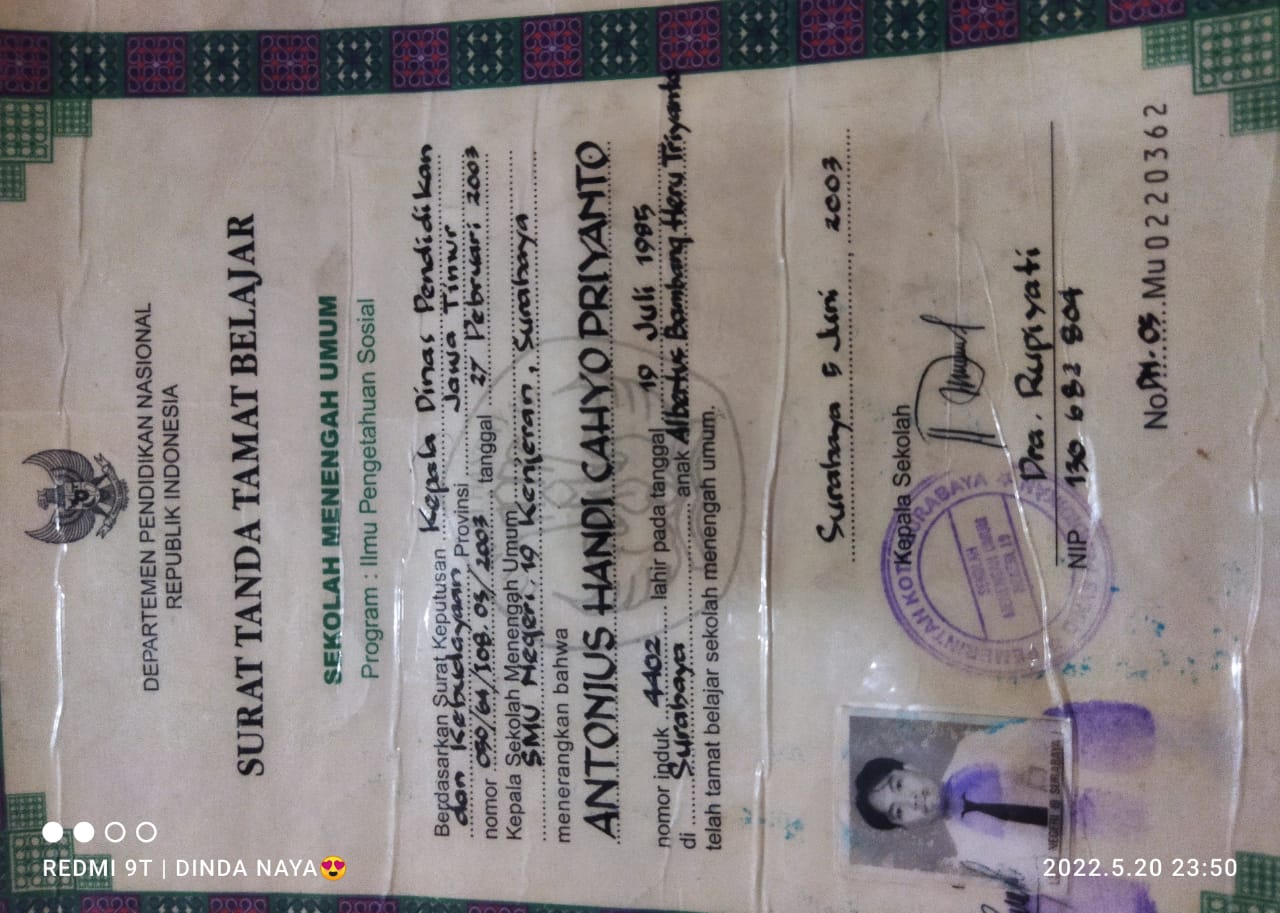 DEPARTEMEN PENDIDIKAN NASIONAL
REPUBLIK INDONESIA
SURAT TANDA TAMAT BELAJAR
SEKOLAH MENENGAH UMUM
Program : Ilmu Pengetahuan Sosial
Berdasarkan Surat Keputusan Kepala Dinas Pendidikan
dan Kebudayaan Provinsi Jawa Timur
nomor 050/64/108.03/2003 tanggal 27 Pebruari 2003
Kepala Sekolah Menengah Umum
SMU Negeri 19 Kenjeran, Surabaya
menerangkan bahwa
ANTONIUS HANDI CAHYO PRIYANTO
nomor induk 4402 lahir pada tanggal 19 Juli 1985
di Surabaya anak Albertus Bambang Heru Triyanto
telah tamat belajar sekolah menengah umum.
Surabaya 5 Juni 2003
Kepala Sekolah
PEMERINTAH KOTA SURABAYA
Dra. Rupiyati
NIP 130 682 804
No.DN.05.Mu 0220362
REDMI 9T | DINDA NAYA😍
2022.5.20 23:50